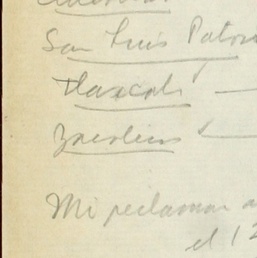 San Luis Potosí
Tlaxcala —
Zacatecas —
Mi reclaman a
el 12